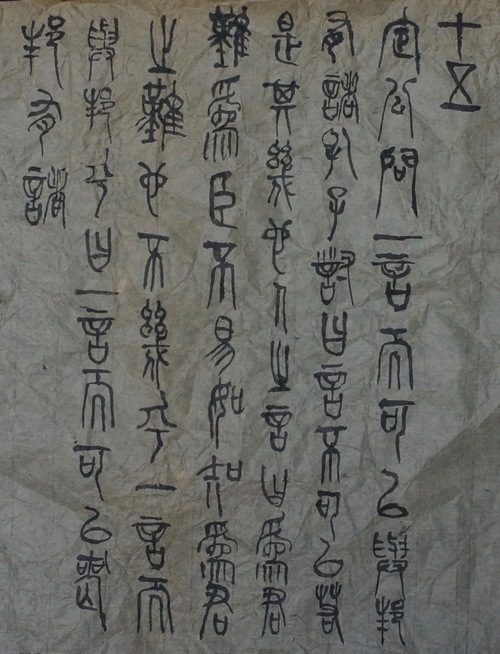 十五
定公問一言而可以興邦
有諸孔子對曰言不可以若
是其幾也人之言曰爲君
難爲臣不易如知爲君
之難也不幾乎一言而
興邦乎曰一言而可以喪
邦有諸